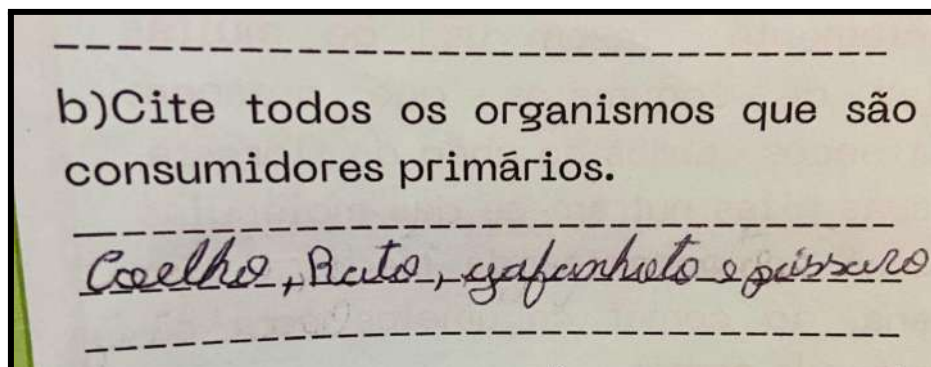 b)Cite todos os organismos que são
consumidores primários.
Coelho, Rato, gafanhoto e pássaro